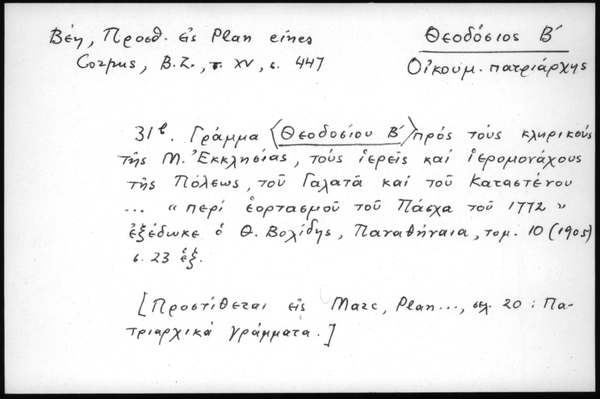 Βέη, Προσθ. εἰς Plan eines
Corpus, B.Z., τ. XV, σ. 447
Θεοδόσιος Β΄
Οἰκουμ. πατριάρχης
31b. Γράμμα ⟨Θεοδοσίου Β΄⟩ πρός τούς κληρικούς
τῆς Μ. Ἐκκλησίας, τούς ἱερεῖς καί ἱερομονάχους
τῆς Πόλεως, τοῦ Γαλατᾶ καί τοῦ Καταστένου
... «περί ἑορτασμοῦ τοῦ Πάσχα τοῦ 1772»
ἐξέδωκε ὁ Θ. Βολίδης, Παναθήναια, τομ. 10 (1905)
σ. 23 ἑξ.
[Προστίθεται εἰς Marc, Plan..., σελ. 20: Πα-
τριαρχικά γράμματα.]